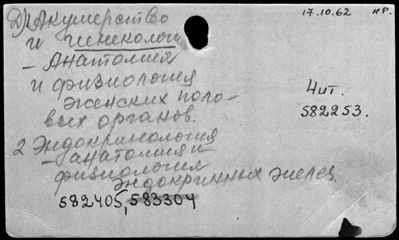 Д) Акушерство
и гинеколог.
17.10.62 нр.
- Анатомия
и физиология
женских поло-
вых органов.
Чит.
582253.
2 Эндокринология
- анатомия и
физиология
эндокринных желез
582405, 583304